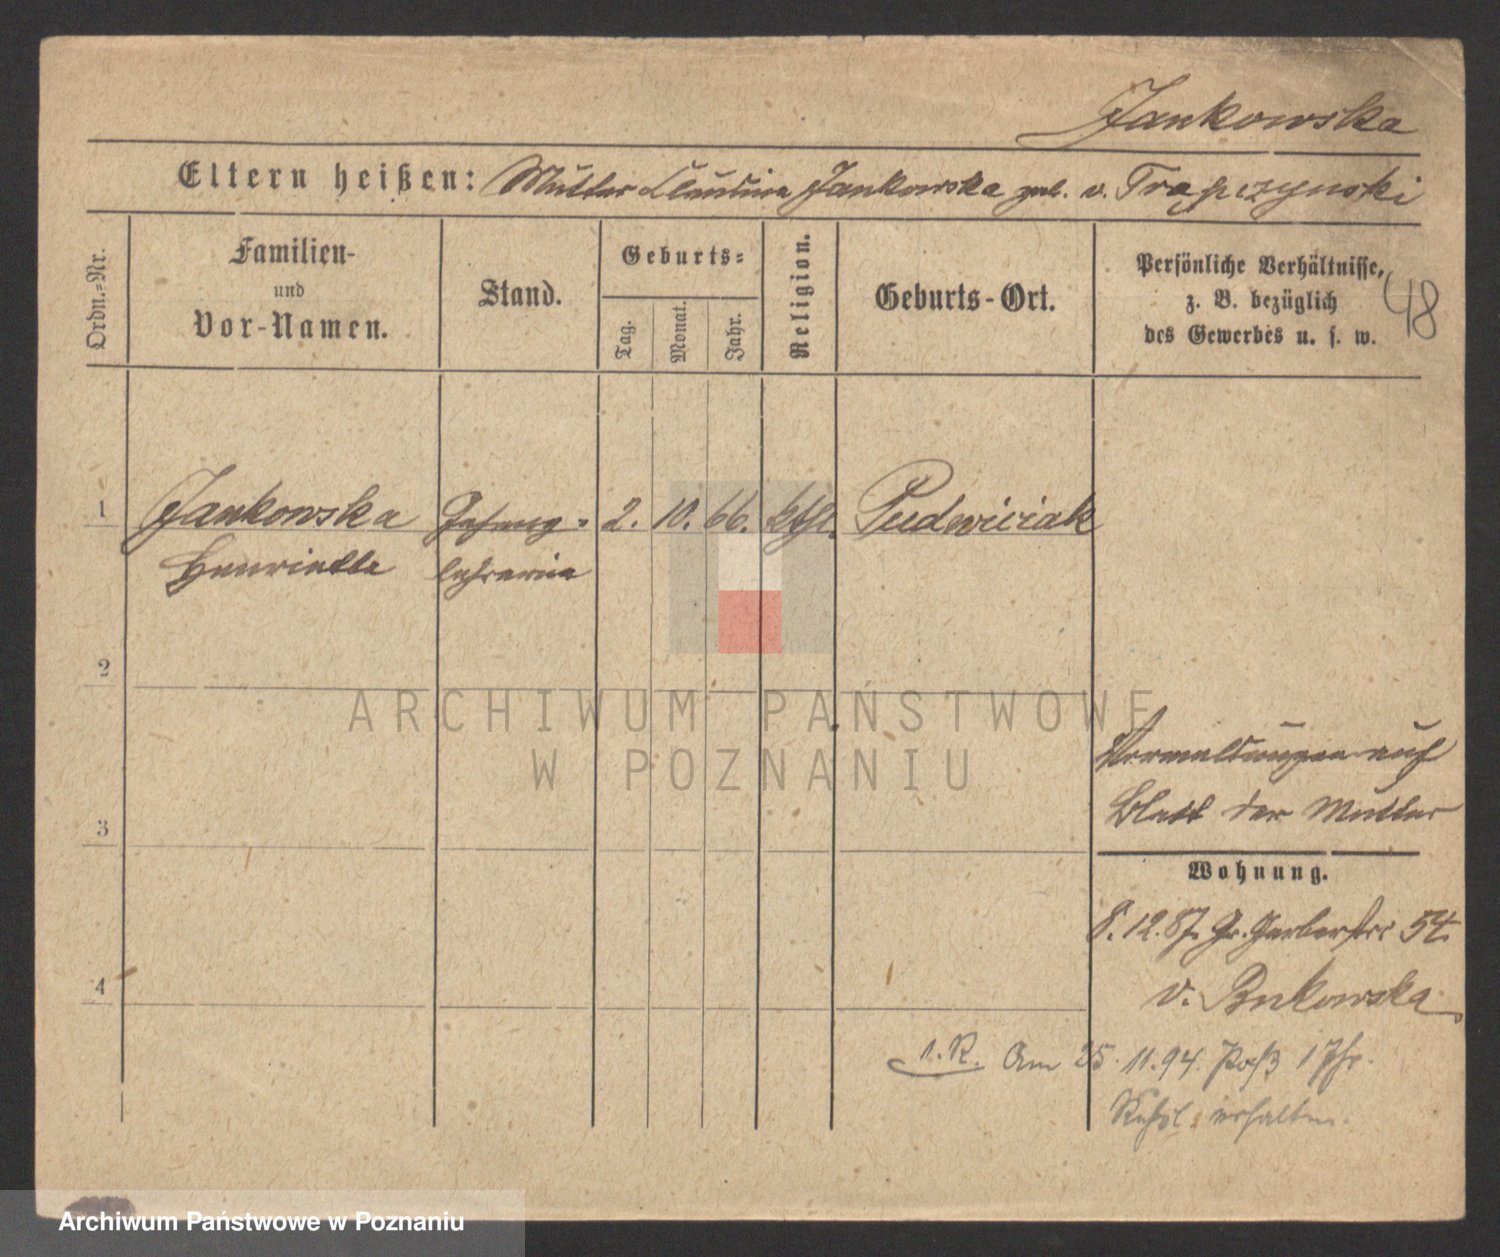 Jankowska
Eltern heißen: Mutter Claudina Jankowska geb. v. Trapczynski
Ordn.=Nr.
Familien-
und
Vor-Namen.
Stand.
Geburts=
Tag.
Monat.
Jahr.
Religion.
Geburts-Ort.
Persönliche Verhältnisse,
z. B. bezüglich
des Gewerbes u. s. w.
48
1 Jankowska Gesang= 2. 10. 66. kthl. Pudwiciak
Henriette lehrerin
2
ARCHIWUM PAŃSTWOWE
W POZNANIU
auf
3 Blatt der Mutter
Wohnung.
8. 12. 87. Gr. Gerberstr 54.
4 v.
1. R. Am 25. 11. 94. Paß 1 Jhr.
erhalten.
Archiwum Państwowe w Poznaniu